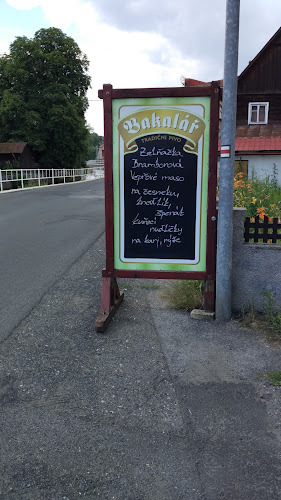 Bakalář
TRADIČNÍ PIVO
Zelňačka
Bramborová
Vepřové maso
na česneku,
knedlík,
špenát
Kuřecí
nudličky
na kari, rýže